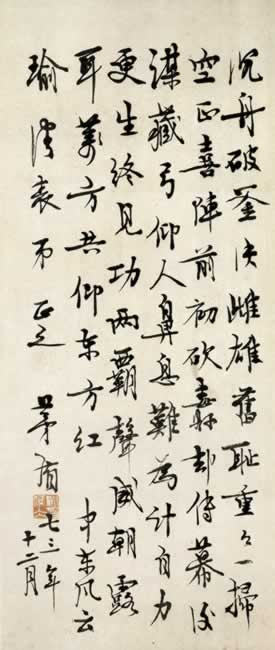 沉舟破釜决雌雄舊耻重々一掃
空正喜陣前初砍纛却传幕後
謀藏弓仰人鼻息難為計自力
更生终见功两霸聲威朝露
耳萬方共仰东方红 中东风云
瑜清表弟 正之 茅盾 七三年
十二月